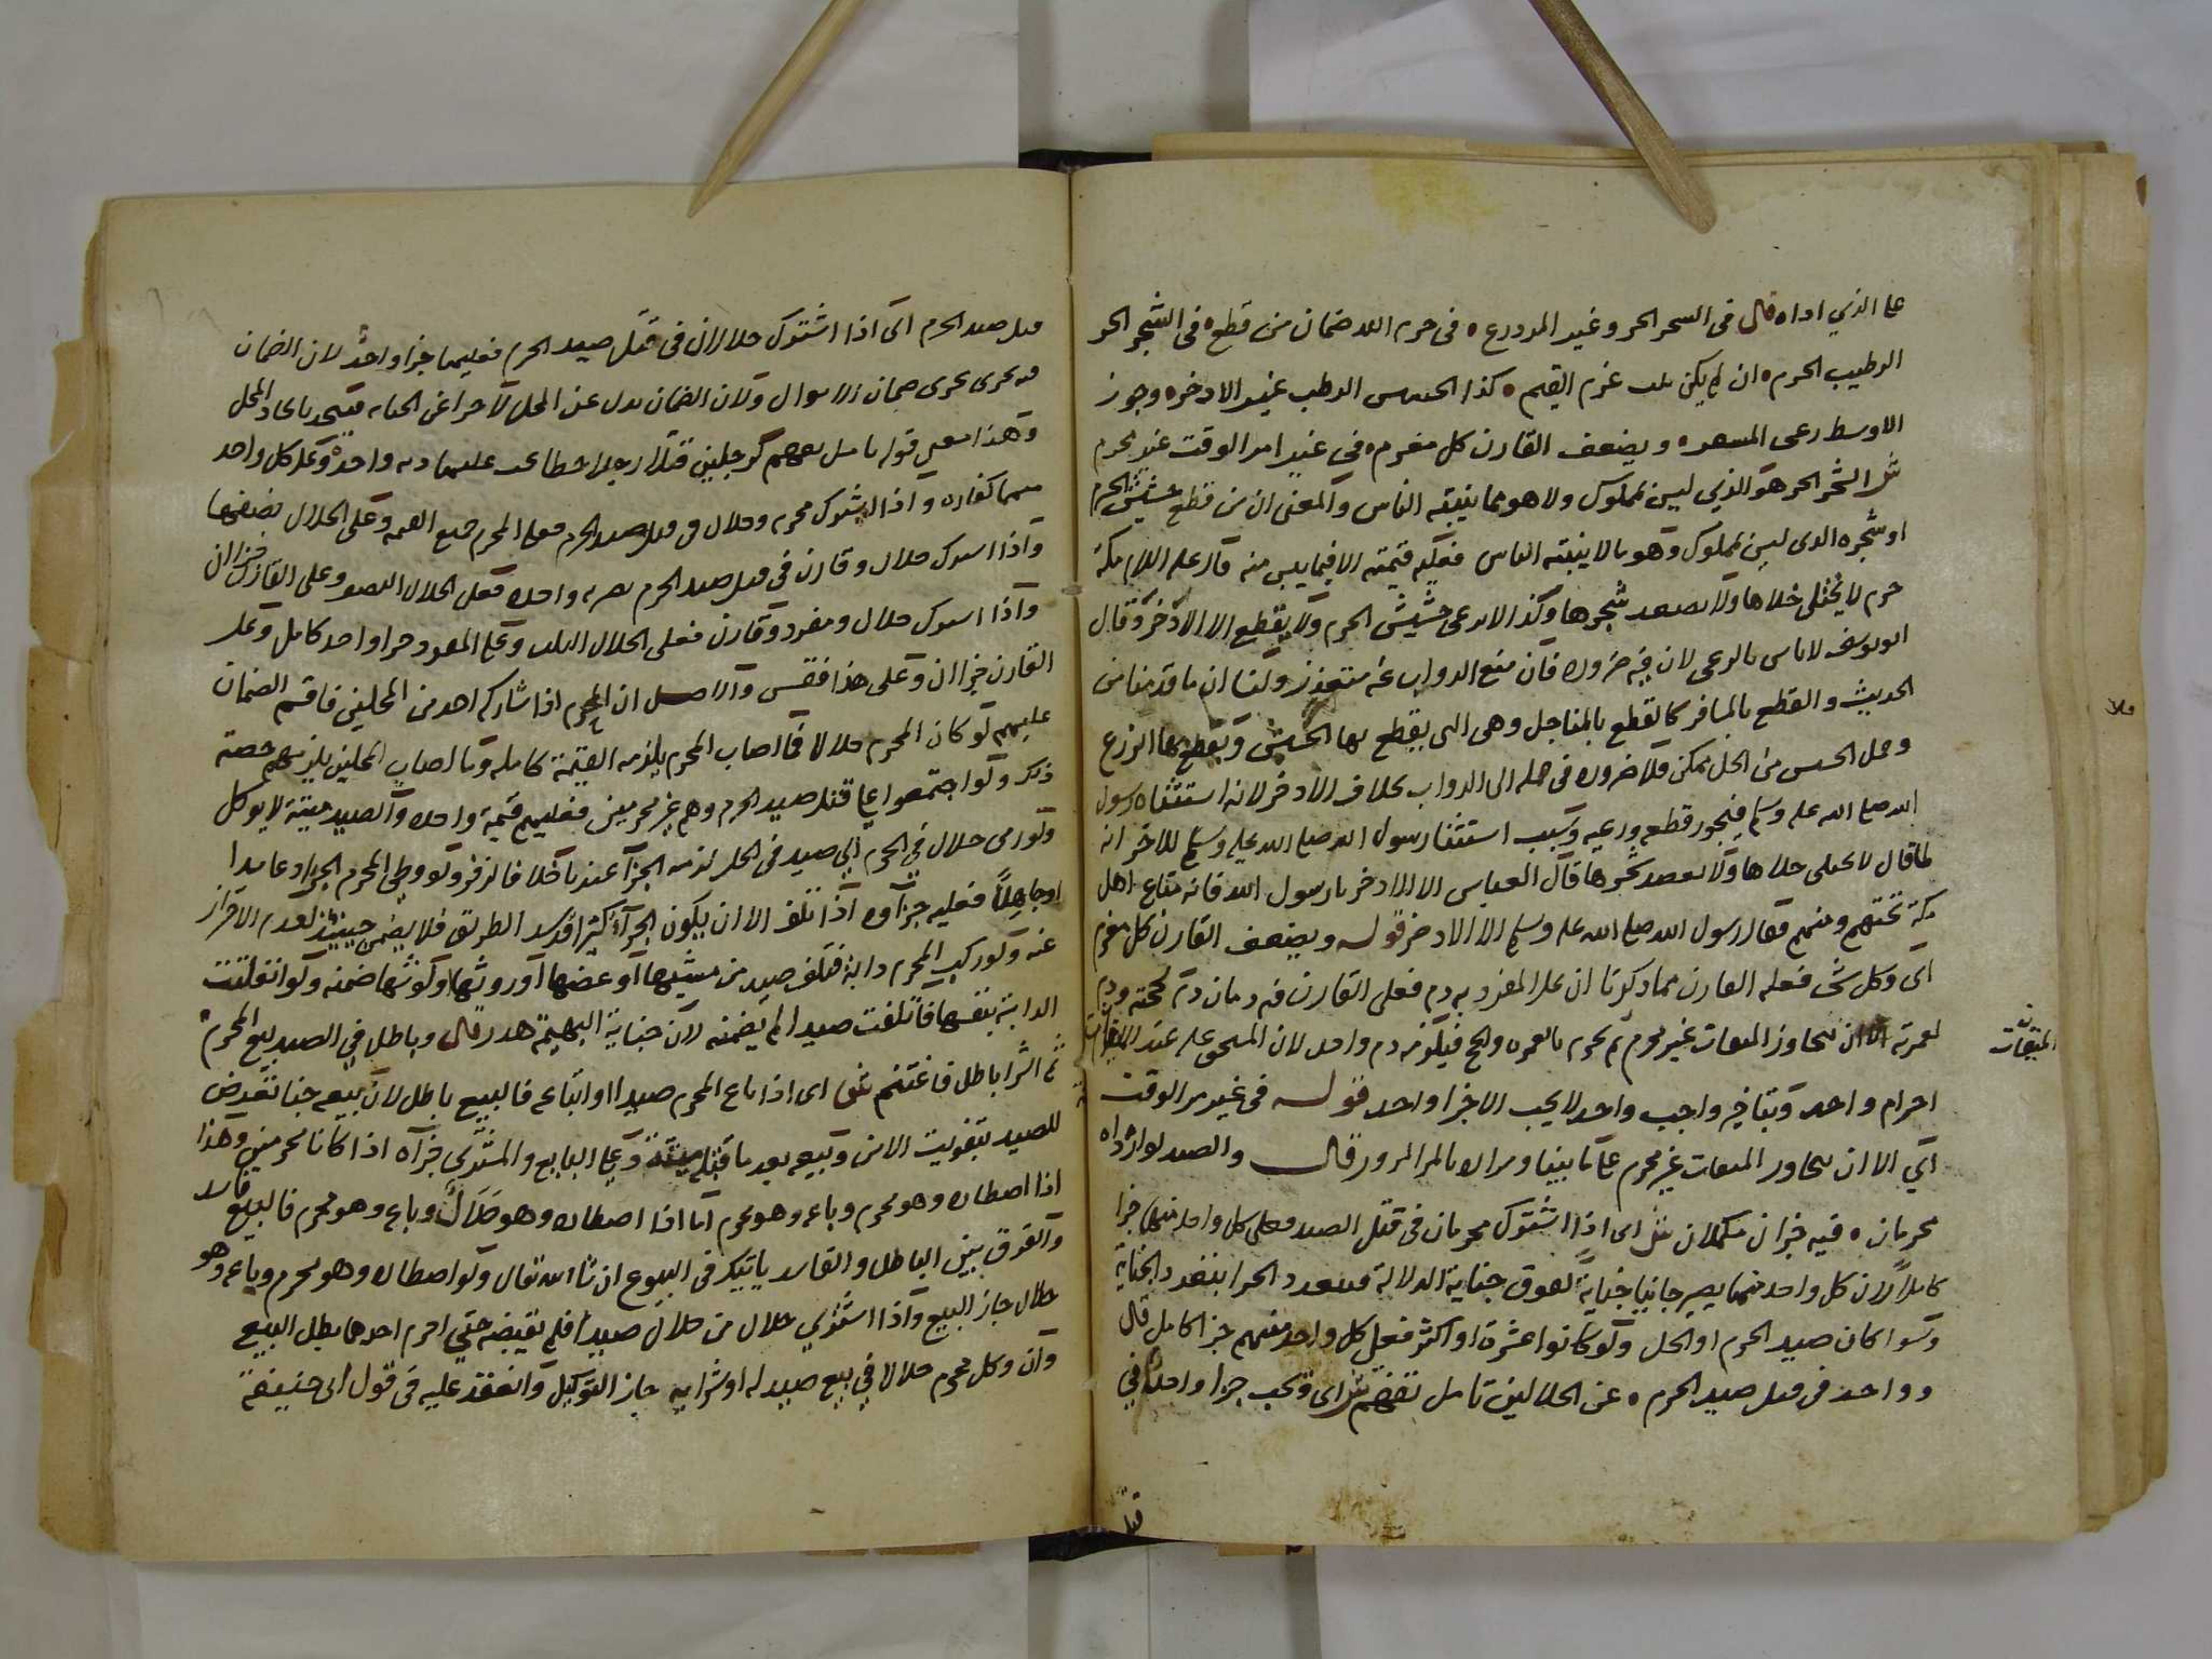 على الذي اداه قال في السحر الحر وغير المزدرع ٥ في حرم الله ضمان من قطع ٥ في الشجر الحر
الرطيب الحرم ٥ ان لم يكن ملك غرم القيم ٥ كذا الحسس الرطب غير الادخر ٥ وجوز
الاوسط رعى المسعر ٥ ويضعف القارن كل مغرم ٥ في غير امر الوقت غير محرم
ش الشجر الحر هو الذي ليس بمملوك ولا هو مما ينبته الناس والمعنى ان من قطع حشيش الحرم
او شجره الدى ليس بمملوك وهو مما لا ينبته الناس فعليه قيمته الا فيما يبس منه قال عليه السلام مكة
حرم لا يختلى خلاها ولا يعضد شجرها وكذا لا يرعى حشيش الحرم ولا يقطع الا الاذخر وقال
ابو يوسف لا باس بالرعى لان فيه ضروره فان منع الدواب عنه متعذر ولنا ان ما قدمنا من
الحديث والقطع بالمشافر كالقطع بالمناجل وهي التى يقطع بها الحشيش ويقطع بها الزرع
وحمل الحسس من الحل ممكن فلا ضروره في حمله الى الدواب بخلاف الادخر لانه استثناه رسول
الله صلى الله عليه وسلم فيجوز قطعه ورعيه وسبب استثنا رسول الله صلى الله عليه وسلم للاذخر انه
لما قال لا يختلى خلاها ولا يعضد شجرها قال العباس الا الاذخر يا رسول الله فانه متاع اهل
مكة فقال رسول الله صلى الله عليه وسلم الا الاذخر قوله ويضعف القارن كل مغرم
اي وكل شى فعله القارن مما ذكرنا ان على المفرد به دم فعلى القارن فيه دمان دم لحجته ودم
لعمرته الا ان يتجاوز الميقات غير محرم ثم يحرم بالعمره والحج فيلزمه دم واحد لان المستحق عليه عند الميقات
الميقات
احرام واحد وبتاخير واجب واحد لا يجب الا جزا واحد قوله في غير مر الوقت
اي الا ان يتجاوز الميقات غير محرم على ما بينا ومراده بالمر المرور قال والصيد لو ارداه
محرمان ٥ فيه جزان مكملان ش اى اذا اشترك محرمان في قتل الصيد فعلى كل واحد منهما جزا
كاملا لان كل واحد منهما يصير جانيا جناية تفوق جناية الدلالة فيتعدد الجزا بتعدد الجناية
وسوا كان صيد الحرم او الحل ولو كانوا عشرة او اكثر فعلى كل واحد منهم جزا كامل قال
وواحد في قتل صيد الحرم ٥ عن الحلالين تامل تفهم ش اى وتجب جزا واحدة في
قتل
قتل صيد الحرم اى اذا اشترك حلالان في قتل صيد الحرم فعليهما جزا واحد لان الضمان
فيه يجرى مجرى ضمان الاموال ولان الضمان بدل عن المحل لا جزا عن الجنايه فيتحد باتحاد المحل
وهذا معنى قوله تامل تفهم كرجلين قتلا رجلا خطا يجب عليهما ديه واحدة وعلى كل واحد
منهما كفاره واذا اشترك محرم وحلال في قتل صيد الحرم فعلى المحرم جميع القيمه وعلى الحلال نصفها
واذا اشترك حلال وقارن في قتل صيد الحرم بضربه واحده فعلى الحلال النصف وعلى القارن جزاان
واذا اشترك حلال ومفرد وقارن فعلى الحلال الثلث وعلى المفرد جزا واحد كامل وعلى
القارن جزاان وعلى هذا فقس والاصل ان المحرم اذا شاركه احد من المحلين فاقسم الضمان
عليهم لو كان المحرم حلالا فما اصاب المحرم يلزمه القيمة كامله وما اصاب المحلين يلزمهم حصة
ذلك ولو اجتمعوا على قتل صيد الحرم وهم غير محرمين فعليهم قيمة واحده والصيد ميتة لا يوكل
ولو رمى حلال في الحرم الى صيد في الحل لزمه الجزا عندنا خلافا لزفر ولو وطى المحرم الجراد عامدا
او جاهلا فعليه جزاوه اذا تلف الا ان يكون الجراد كثيرا قد سد الطريق فلا يضمن حينئذ لعدم الاحتراز
عنه ولو ركب المحرم دابة فتلف صيد من مشيها او عضها او روثها او لو نثها ضمنه ولو انفلتت
الدابة بنفسها فاتلفت صيدا لم يضمنه لان جناية البهيمة هدر قال وباطل في الصيد بيع المحرم ٥
ثم الشرا باطل فاغتنم ش اى اذا باع المحرم صيدا او ابتاعه فالبيع باطل لان بيعه حيا تعرض
للصيد بتفويت الامن وبيعه بعد ما قتله ميتة وعلى البايع والمشتري جزاه اذا كانا محرمين وهذا
اذا اصطاده وهو محرم وباعه وهو محرم اما اذا اصطاده وهو حلال وباع وهو محرم فالبيع فاسد
والفرق بين الباطل والفاسد ياتيك في البيوع ان شا الله تعالى ولو اصطاده وهو محرم وباعه وهو
حلال جاز البيع واذا اشترى حلال من حلال صيدا فلم يقبضه حتى احرم احدهما بطل البيع
وان وكل محرم حلالا في بيع صيد له او شرايه جاز التوكيل وانعقد عليه في قول ابى حنيفة